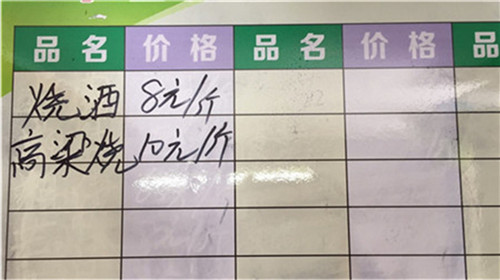 品名 价格 品名 价格 品
烧酒 8元/斤
高粱烧 10元/斤